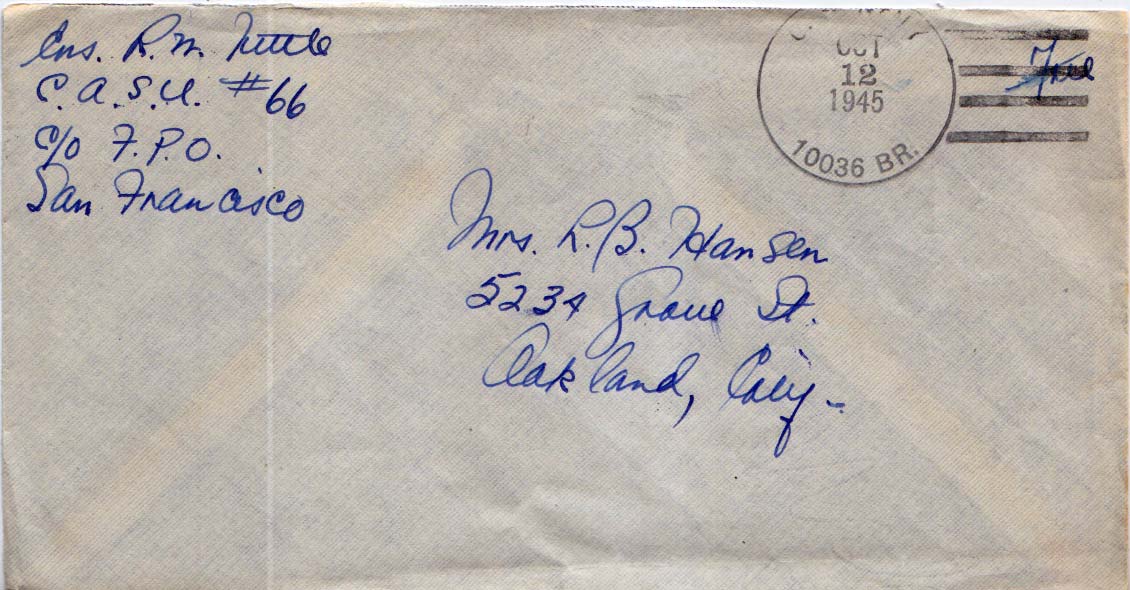 Ens. R.W. Tuttle
C.A.S.U. #66
C/o F.P.O.
San Francisco
OCT
12
1945
10036 BR.
Free
Mrs. R.B. Hansen
5234 Grove St.
Oakland, Calif.